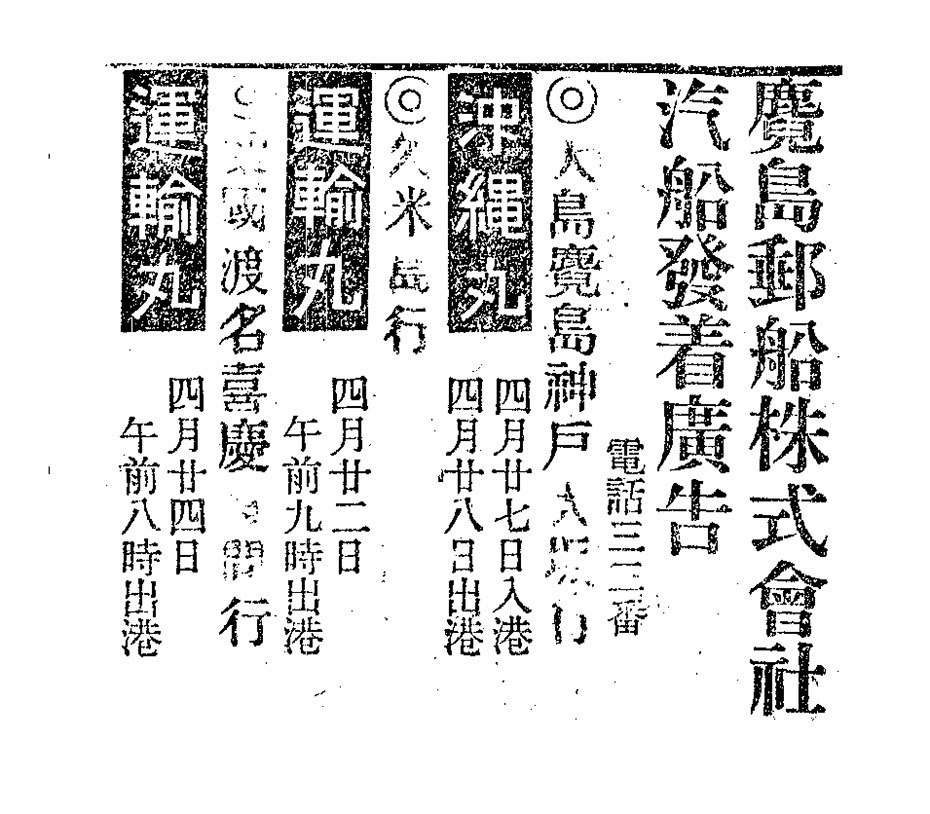 麑島郵船株式會社
汽船發着廣告
電話三二番
◎大島麑島神戸大阪行
沖縄丸
四月廿七日入港
四月廿八日出港
◎久米島行
運輸丸
四月廿二日
午前九時出港
國渡名喜慶間行
運輸丸
四月廿四日
午前八時出港